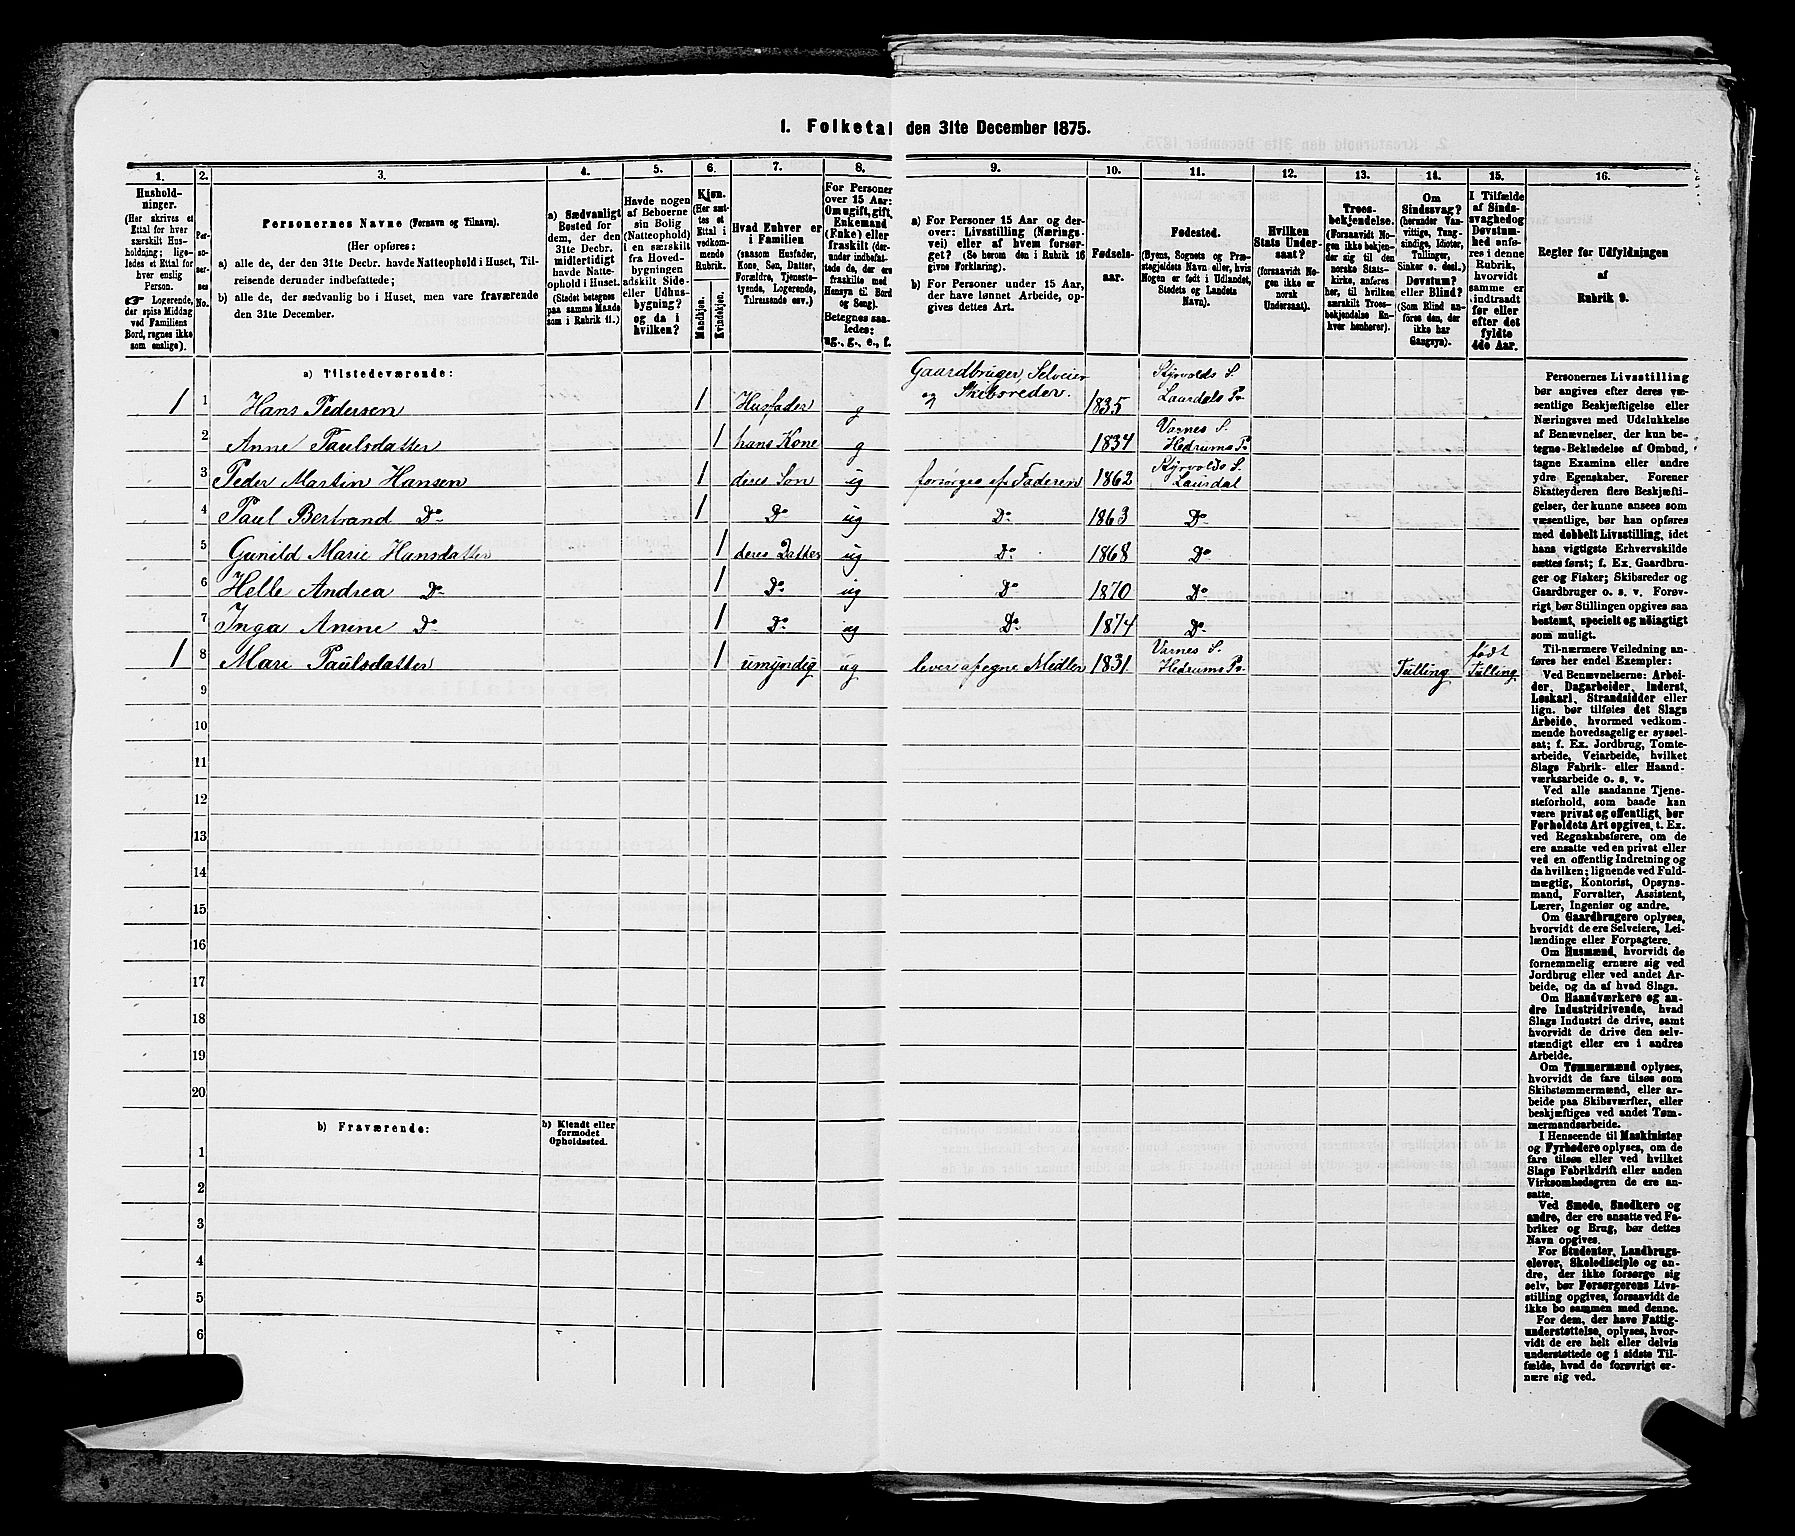 1. Folketal den 31te December 1875.
1.
2.
3.
4.
5.
6.
7.
8.
9.
10.
11.
12.
13.
14.
15.
16.
Hushold-
ninger.
(Her skrives et
Ettal for hver
særskilt Hus-
holdning; lige-
ledes et Ettal for
hver enslig
Person.
☞ Logerende,
der spise Middag
ved Familiens
Bord, regnes ikke
som enslige).
Per-
so-
ner-
nes
No.
Personernes Navne (Fornavn og Tilnavn).
(Her opføres:
a) alle de, der den 31te Decbr. havde Natteophold i Huset, Til-
reisende derunder indbefattede;
b) alle de, der sædvanlig bo i Huset, men vare fraværende
den 31te December.
a) Sædvanligt
Bosted for
dem, der den
31te Decbr.
midlertidigt
havde Natte-
ophold i Huset.
(Stedet betegnes
paa samme Maade
som i Rubrik 11.)
Havde nogen
af Beboerne
sin Bolig
(Natteophold)
i en særskilt
fra Hoved-
bygningen
adskilt Side-
eller Udhus-
bygning?
og da i
hvilken?
Kjøn.
(Her sæt-
tes et
Ettal i
vedkom-
mende
Rubrik.
Mandkjøn.
Kvindekjøn.
Hvad Enhver er
i Familien
(saasom Husfader,
Kone, Søn, Datter,
Forældre, Tjeneste-
tyende, Logerende,
Tilreisende osv.)
For Personer
over 15 Aar:
Om ugift, gift,
Enkemand
(Enke) eller
fraskilt (der-
under indbefat-
tede de, der ere
fraskilte med
Hensyn til Bord
og Seng).
Betegnes saa-
ledes:
ug., g., e., f.
a) For Personer 15 Aar og der-
over: Livsstilling (Nærings-
vei) eller af hvem forsør-
get? (Se herom den i Rubrik 16
givne Forklaring).
b) For Personer under 15 Aar,
der have lønnet Arbeide, op-
gives dettes Art.
Fødsels-
aar.
Fødested.
(Byens, Sognets og Præ-
stegjeldets Navn eller, hvis
Nogen er født i Udlandet,
Stedets og Landets
Navn).
Hvilken
Stats Under-
saat?
(forsaavidt No-
gen ikke er
norsk
Undersaat).
Troes-
bekjendelse.
(Forsaavidt No-
gen ikke bekjen-
der sig til den
norske Stats-
kirke, anføres
her, til hvilken
særskilt Troes-
bekjendelse En-
hver henhører).
Om
Sindssvag?
(herunder Van-
vittige, Tung-
sindige, Idioter,
Tullinger,
Sinker o. desl.)
Døvstum?
eller Blind?
(Som Blind an-
føres den, der
ikke har
Gangsyn).
I Tilfælde
af Sinds-
svaghed og
Døvstum-
hed anfø-
res i denne
Rubrik,
hvorvidt
samme er
indtraadt
før eller
efter det
fyldte
4de Aar.
Regler for Udfyldningen
af
Rubrik 9.
a) Tilstedeværende:
1 1 Hans Pedersen 1 Husfader g Gaardbruger, Selveier og Skibsreder. 1835 Styrvolds S. Laurdals Pr
2 Anne Paulsdatter 1 hans Kone g 1834 Varnes S. Hedrums Pr
3 Peder Martin Hansen 1 deres Søn ug forsørges af Faderen 1862 Styrvolds S. Laurdal
4 Paul Bertrand Do 1 Do ug Do 1863 Do
5 Gunild Marie Hansdatter 1 deres Datter ug Do 1868 Do
6 Helle Andrea Do 1 Do ug Do 1870 Do
7 Inga Anine Do 1 Do ug Do 1874 Do
1 8 Mari Paulsdatter 1 umyndig ug lever af egne Midler 1831. Varnes S. Hedrums Pr Tulling født Tulling
9
10
11
12
13
14
15
16
17
18
19
20
b) Fraværende:
b) Kjendt eller
formodet
Opholdssted.
1
2
3
4
5
6
Personernes Livsstilling
bør angives efter deres væ-
sentlige Beskjæftigelse eller
Næringsvei med Udelukkelse
af Benævnelser, der kun be-
tegne Beklædelse af Ombud,
tagne Examina eller andre
ydre Egenskaber. Forener
Skatteyderen flere Beskjæfti-
gelser, der kunne ansees som
væsentlige, bør han opføres
med dobbelt Livsstilling, idet
hans vigtigste Erhvervskilde
sættes først; f. Ex. Gaardbru-
ger og Fisker; Skibsreder og
Gaardbruger o. s. v. Forøv-
rigt bør Stillingen opgives saa
bestemt, specielt og nøiagtigt
som muligt.
Til nærmere Veiledning an-
føres her endel Exempler:
Ved Benævnelserne: Arbei-
der, Dagarbeider, Inderst,
Løskarl, Strandsidder eller
lign. bør tilføies det Slags
Arbeide, hvormed vedkom-
mende hovedsagelig er syssel-
sat; f. Ex. Jordbrug, Tomte-
arbeide, Veiarbeide, hvilket
Slags Fabrik- eller Haand-
værksarbeide o. s. v.
Ved alle saadanne Tjene-
steforhold, som baade kan
være privat og offentligt, bør
Forholdets Art opgives, t. Ex.
ved Regnskabsførere, om de
ere ansatte ved en privat eller
ved en offentlig Indretning og
da hvilken; lignende ved Fuld-
mægtig, Kontorist, Opsyns-
mand, Forvalter, Assistent,
Lærer, Ingeniør og andre.
Om Gaardbrugere oplyses,
hvorvidt de ere Selveiere, Lei-
lændinge eller Forpagtere.
Om Husmænd, hvorvidt de
fornemmelig ernære sig ved
Jordbrug eller ved andet Ar-
beide, og da af hvad Slags.
Om Haandværkere og an-
dre Industridrivende, hvad
Slags Industri de drive, samt
hvorvidt de drive den selv-
stændigt eller ere i andres
Arbeide.
Om Tømmermænd oplyses,
hvorvidt de fare tilsøs som
Skibstømmermænd, eller ar-
beide paa Skibsværfter, eller
beskjæftiges ved andet Tøm-
mermandsarbeide.
I Henseende til Maskinister
og Fyrbødere oplyses, om de
fare tilsøs eller ved hvilket
Slags Fabrikdrift eller anden
Virksomhedsgren de ere an-
satte.
Ved Smede, Snedkere og
andre, der ere ansatte ved Fa-
briker og Brug, bør dettes
Navn opgives.
For Studenter, Landbrugs-
elever, Skoledisciple og an-
dre, der ikke forsørge sig
selv, bør Forsørgerens Livs-
stilling opgives, forsaavidt de
ikke bo sammen med denne.
For dem, der have Fattig-
understøttelse, oplyses, hvor-
vidt de ere helt eller delvis
understøttede og i sidste Til-
fælde, hvad de forøvrigt er-
nære sig ved.